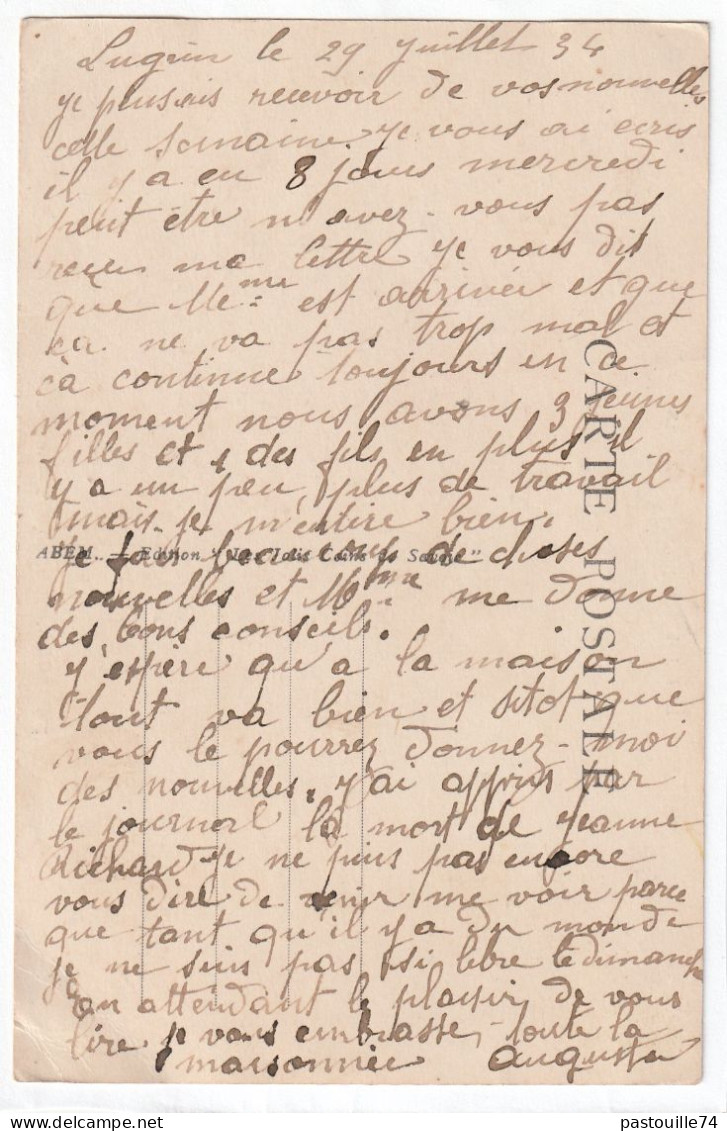 Lugrin le 29 Juillet 34
je pensais recevoir de vos nouvelles
cette semaine je vous ai ecris
il y a eu 8 jours mercredi
peut etre n'avez-vous pas
recu ma lettre je vous dit
que Me.me est arrivée et que
ça ne va pas trop mal et
ça continue toujours en ce
moment nous avons 3 jeunes
filles et des fils en plus il
y a un peu plus de travail
mais je m'entire bien.
ABEM. — Edition " Nos Jolis Coins de Savoie "
je fais beaucoup de choses
nouvelles et Mme me donne
des bons conseils.
j'espère qu'a la maison
tout va bien et sitot que
vous le pourrez donnez-moi
des nouvelles. j'ai appris par
le journal la mort de jeanne
Richard je ne puis pas encore
vous dire de venir me voir parce
que tant qu'il y a du monde
je ne suis pas si libre le dimanche
en attendant le plaisir de vous
lire je vous embrasse toute la
maisonnée Augusta
CARTE POSTALE
pastouille74